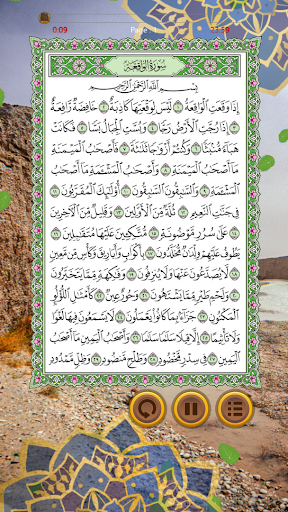 0:09
21:59
سُورَةُ الوَاقِعَةِ
بِسْمِ اللَّهِ الرَّحْمَٰنِ الرَّحِيمِ
إِذَا وَقَعَتِ الْوَاقِعَةُ ١ لَيْسَ لِوَقْعَتِهَا كَاذِبَةٌ ٢ خَافِضَةٌ رَّافِعَةٌ
٣ إِذَا رُجَّتِ الْأَرْضُ رَجًّا ٤ وَبُسَّتِ الْجِبَالُ بَسًّا ٥ فَكَانَتْ
هَبَاءً مُّنبَثًّا ٦ وَكُنتُمْ أَزْوَاجًا ثَلَاثَةً ٧ فَأَصْحَابُ الْمَيْمَنَةِ
مَا أَصْحَابُ الْمَيْمَنَةِ ٨ وَأَصْحَابُ الْمَشْأَمَةِ مَا أَصْحَابُ
الْمَشْأَمَةِ ٩ وَالسَّابِقُونَ السَّابِقُونَ ١٠ أُولَٰئِكَ الْمُقَرَّبُونَ ١١
فِي جَنَّاتِ النَّعِيمِ ١٢ ثُلَّةٌ مِّنَ الْأَوَّلِينَ ١٣ وَقَلِيلٌ مِّنَ الْآخِرِينَ
١٤ عَلَىٰ سُرُرٍ مَّوْضُونَةٍ ١٥ مُّتَّكِئِينَ عَلَيْهَا مُتَقَابِلِينَ ١٦
يَطُوفُ عَلَيْهِمْ وِلْدَانٌ مُّخَلَّدُونَ ١٧ بِأَكْوَابٍ وَأَبَارِيقَ وَكَأْسٍ مِّن مَّعِينٍ
١٨ لَّا يُصَدَّعُونَ عَنْهَا وَلَا يُنزِفُونَ ١٩ وَفَاكِهَةٍ مِّمَّا يَتَخَيَّرُونَ
٢٠ وَلَحْمِ طَيْرٍ مِّمَّا يَشْتَهُونَ ٢١ وَحُورٌ عِينٌ ٢٢ كَأَمْثَالِ اللُّؤْلُؤِ
الْمَكْنُونِ ٢٣ جَزَاءً بِمَا كَانُوا يَعْمَلُونَ ٢٤ لَا يَسْمَعُونَ فِيهَا لَغْوًا
وَلَا تَأْثِيمًا ٢٥ إِلَّا قِيلًا سَلَامًا سَلَامًا ٢٦ وَأَصْحَابُ الْيَمِينِ مَا أَصْحَابُ
الْيَمِينِ ٢٧ فِي سِدْرٍ مَّخْضُودٍ ٢٨ وَطَلْحٍ مَّنضُودٍ ٢٩ وَظِلٍّ مَّمْدُودٍ